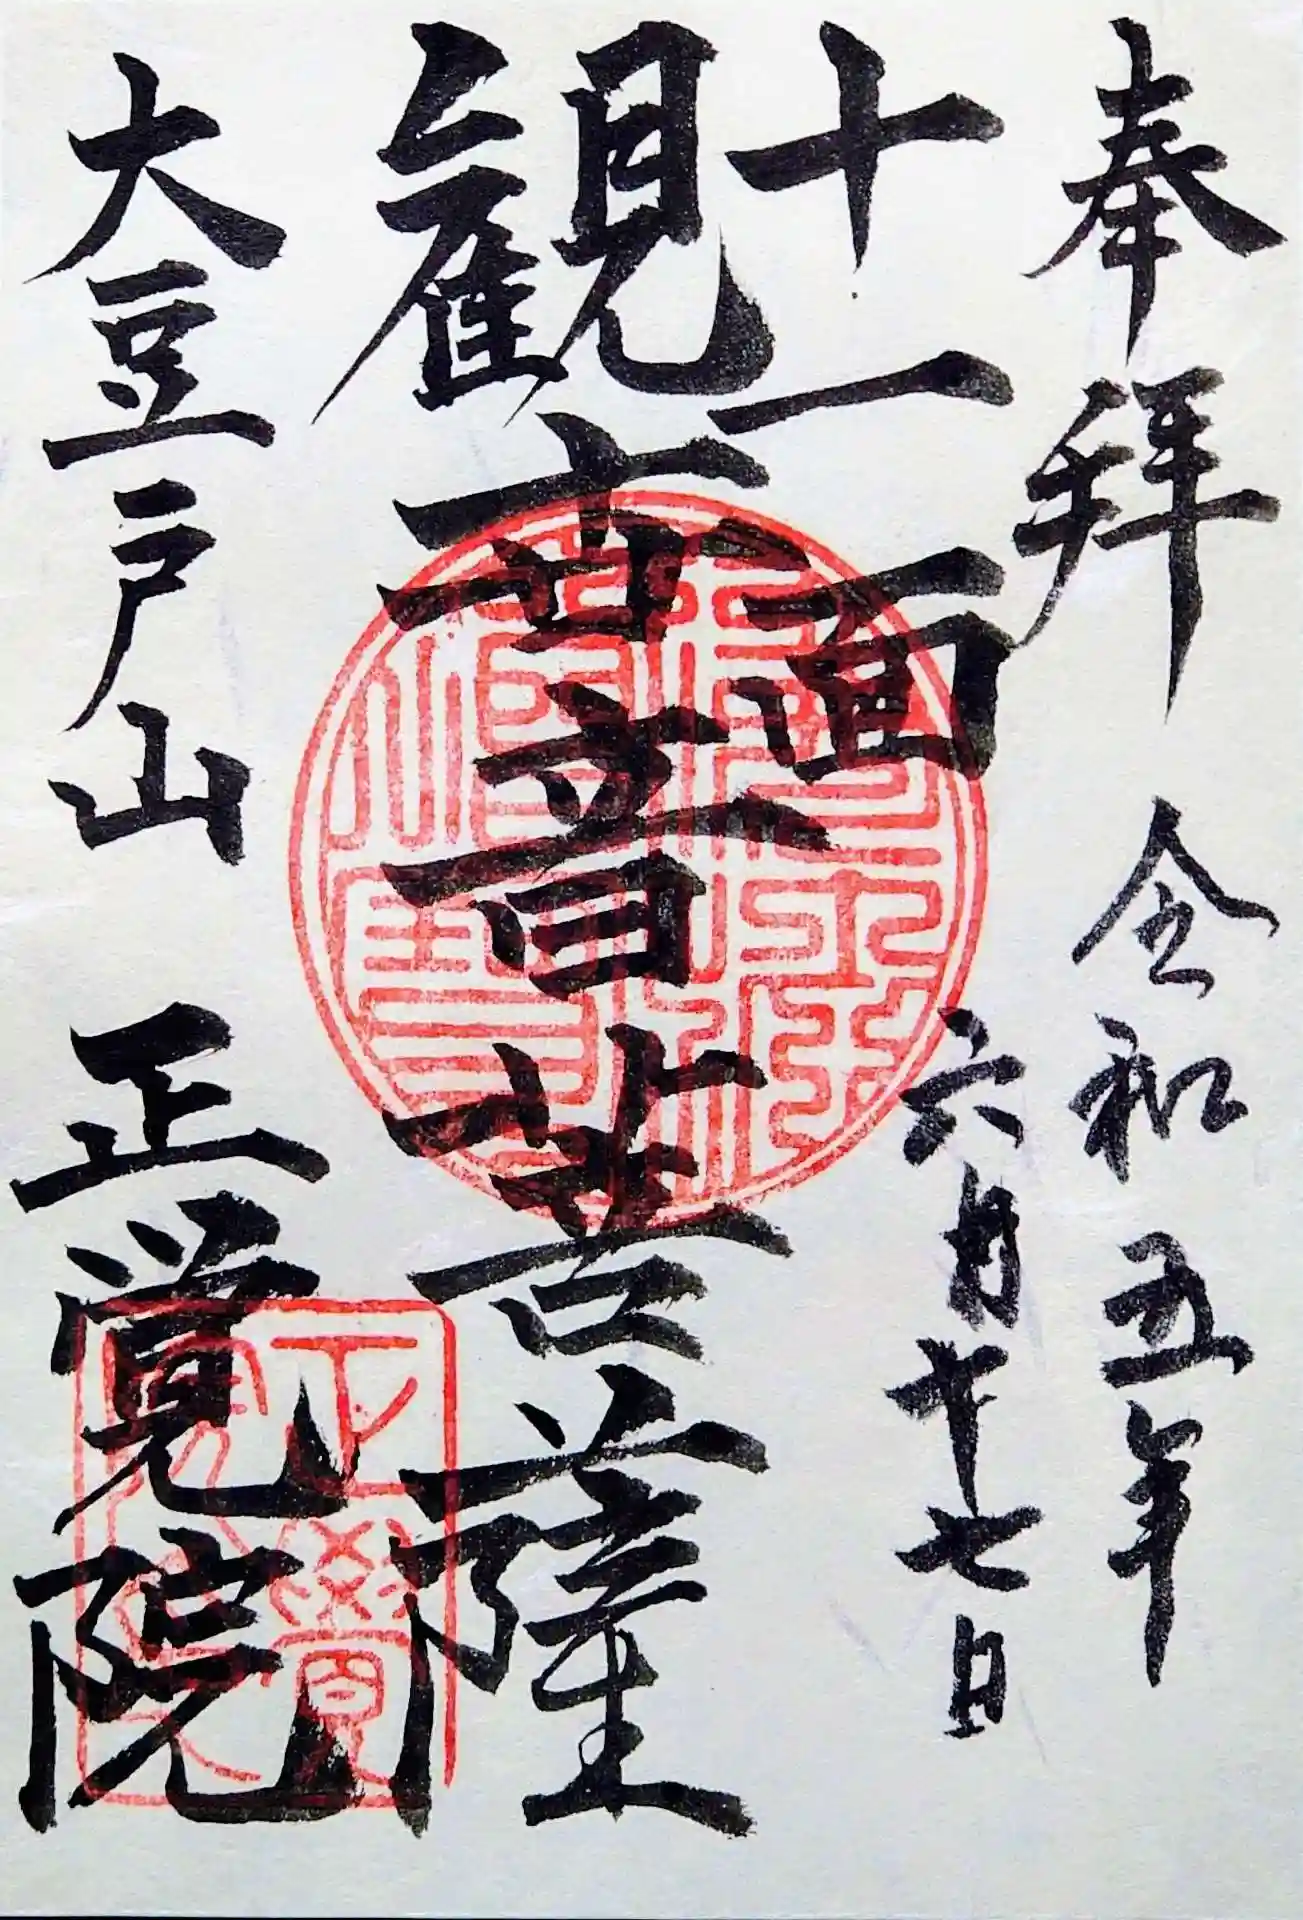 奉拝 令和五年
六月十七日
十一面
観世音菩薩
大豆戸山 正覚院
正覺